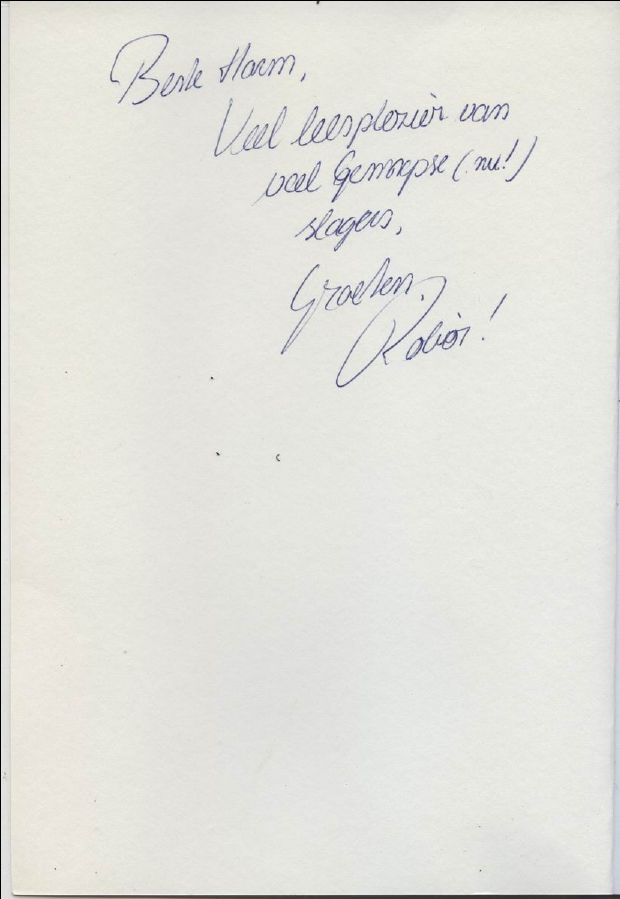 Beste Harm,
Veel leesplezier van
veel Gennepse (nu!)
slagers,
Groeten,
Robèr!